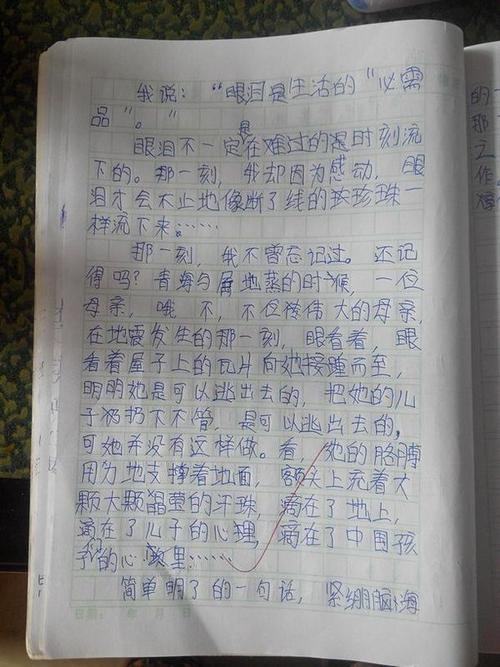 我说："眼泪是生活的"必需
品"。"
是
眼泪不一定在难过的是时刻流
下的。那一刻，我却因为感动，眼
泪才会不止地像断了线的珍珠一
样流下来……
那一刻，我不曾忘记过。还记
得吗？青海与 地 的时候，一位
母亲，哦 不，不位 伟大的母亲，
在地震发生的那一刻，眼看着，眼
看着屋子上的瓦片向她接踵而至，
明明她是可以逃出去的，把她的儿
子扔下不管，是可以逃出去的，
可她并没有这样做。看，她的胳膊
用力地支撑着地面，额头上充着大
颗大颗晶莹的汗珠，滴在了地上，
滴在了儿子的心理，滴在了中国孩
子的心 里……
简单明了的一句话，紧绷脑海
日期： 年 月 日
的
那
之
作